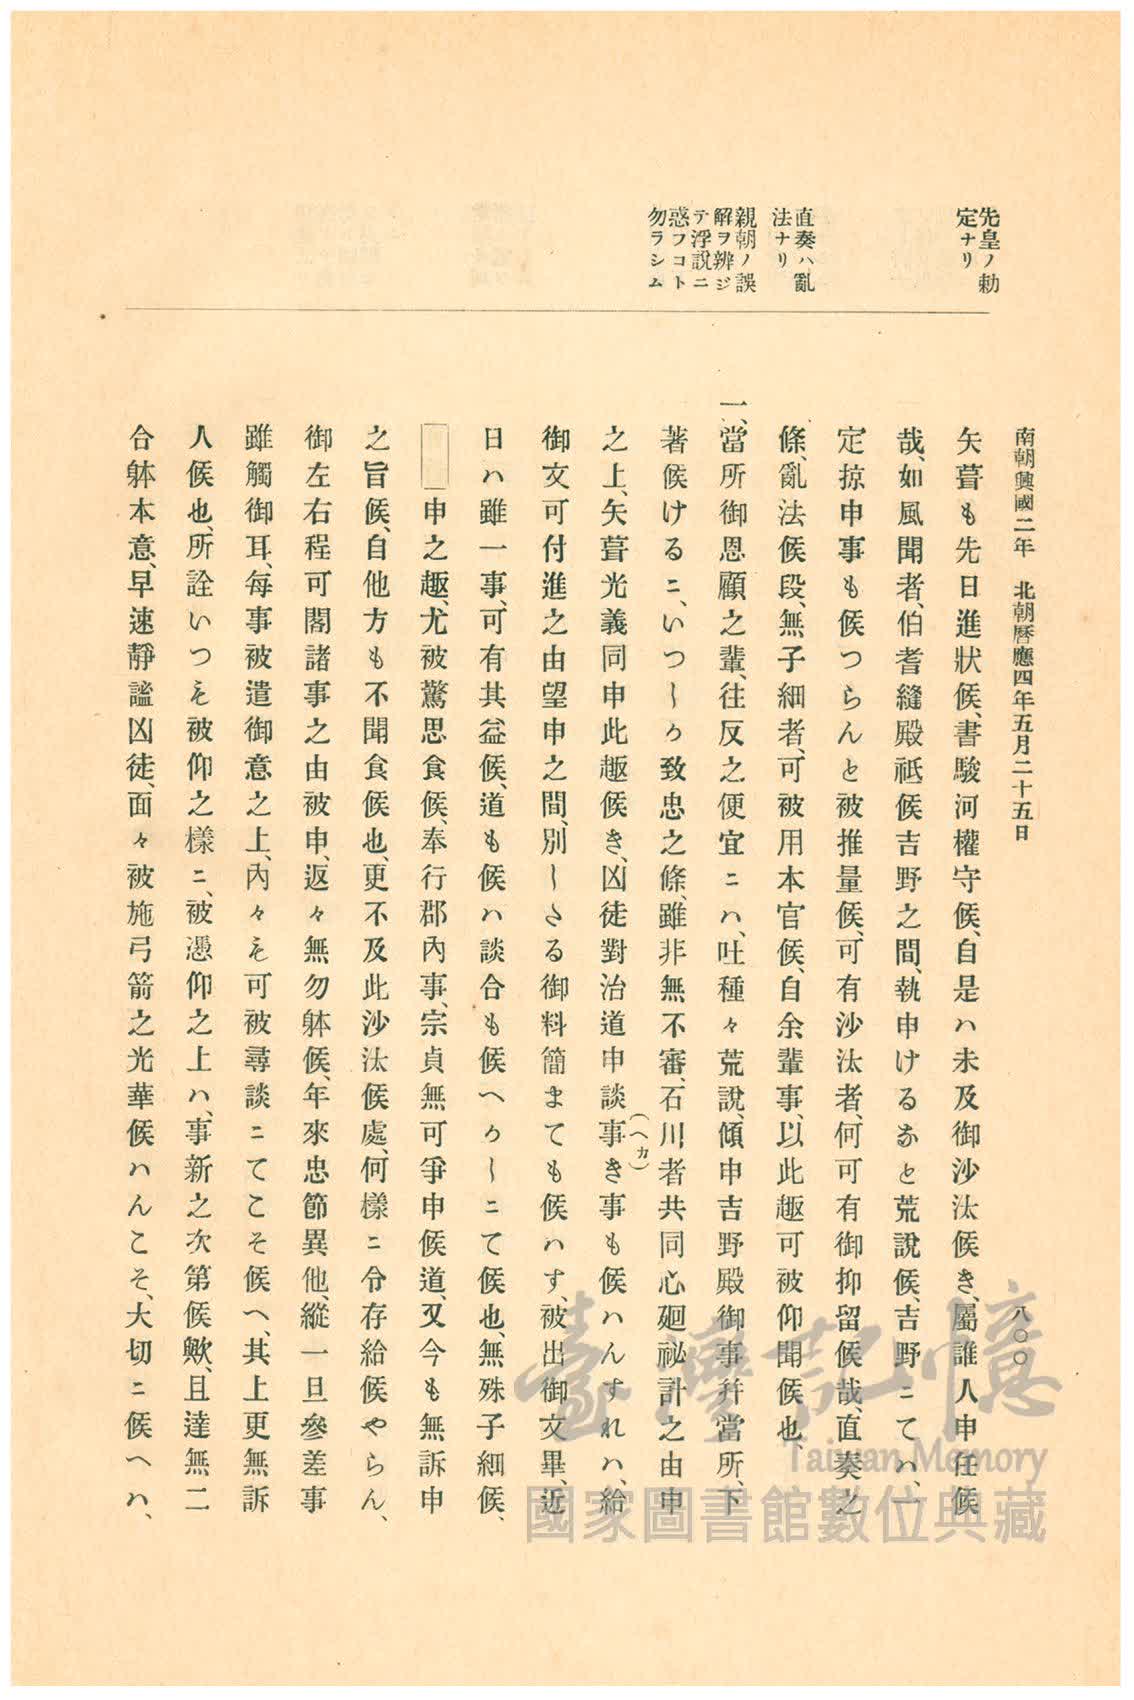 南朝興國二年　北朝曆應四年五月二十五日
八〇〇
先皇ノ勅
定ナリ
直奏ハ亂
法ナリ
親朝ノ誤
解ヲ辨ジ
テ浮說ニ
惑フコト
勿ラシム
矢葺も先日進狀候、書駿河權守候、自是ハ未及御沙汰候き、屬誰人申任候
哉、如風聞者、伯耆縫殿祗候吉野之間、執申けるなと荒說候、吉野ニてハ、一
定掠申事も候つらんと被推量候、可有沙汰者、何可有御抑留候哉、直奏之
條、亂法候段、無子細者、可被用本官候、自余輩事、以此趣可被仰聞候也、
一、當所御恩顧之輩、往反之便宜ニハ、吐種々荒說、傾申吉野殿御事幷當所、下
著候けるニ、いつしか致忠之條、雖非無不審、石川者共同心廻祕計之由申
之上、矢葺光義同申此趣候き、凶徒對治道申談事き事も候ハんすれハ、給
（へカ）
御文可付進之由望申之間、別したる御料簡まても候ハす、被出御文畢、近
日ハ雖一事、可有其益候、道も候ハ談合も候へかしニて候也、無殊子細候、
申之趣、尤被驚思食候、奉行郡內事、宗貞無可爭申候道、又今も無訴申
之旨候、自他方も不聞食候也、更不及此沙汰候處、何樣ニ令存給候やらん、
御左右程可閣諸事之由被申、返々無勿躰候、年來忠節異他、縱一旦參差事
雖觸御耳、每事被遣御意之上、內々も可被尋談ニてこそ候へ、其上更無訴
人候也、所詮いつも被仰之樣ニ、被憑仰之上ハ、事新之次第候歟、且達無二
合躰本意、早速靜謐凶徒、面々被施弓箭之光華候ハんこそ、大切ニ候へハ、
臺灣記憶
Taiwan Memory
國家圖書館數位典藏